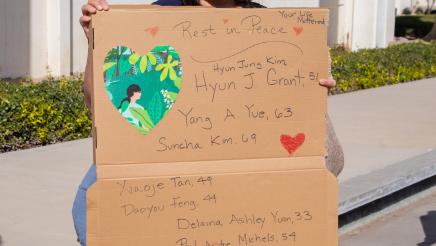 Your Life
Mattered
Rest in Peace
Hyun Jung Kim,
Hyun J Grant, 51
Yang A Yue, 63
Suncha Kim, 69
Xiaoje Tan, 49
Daoyou Feng, 44
Delaina Ashley Yuan, 33
Paul Andre Michels, 54